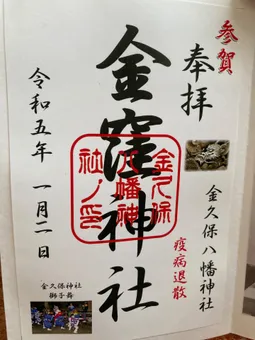 参賀
奉拝
金久保八幡神社
疫病退散
金窪神社
金久保
八幡神
社ノ印
令和五年 一月二日
金久保神社
獅子舞